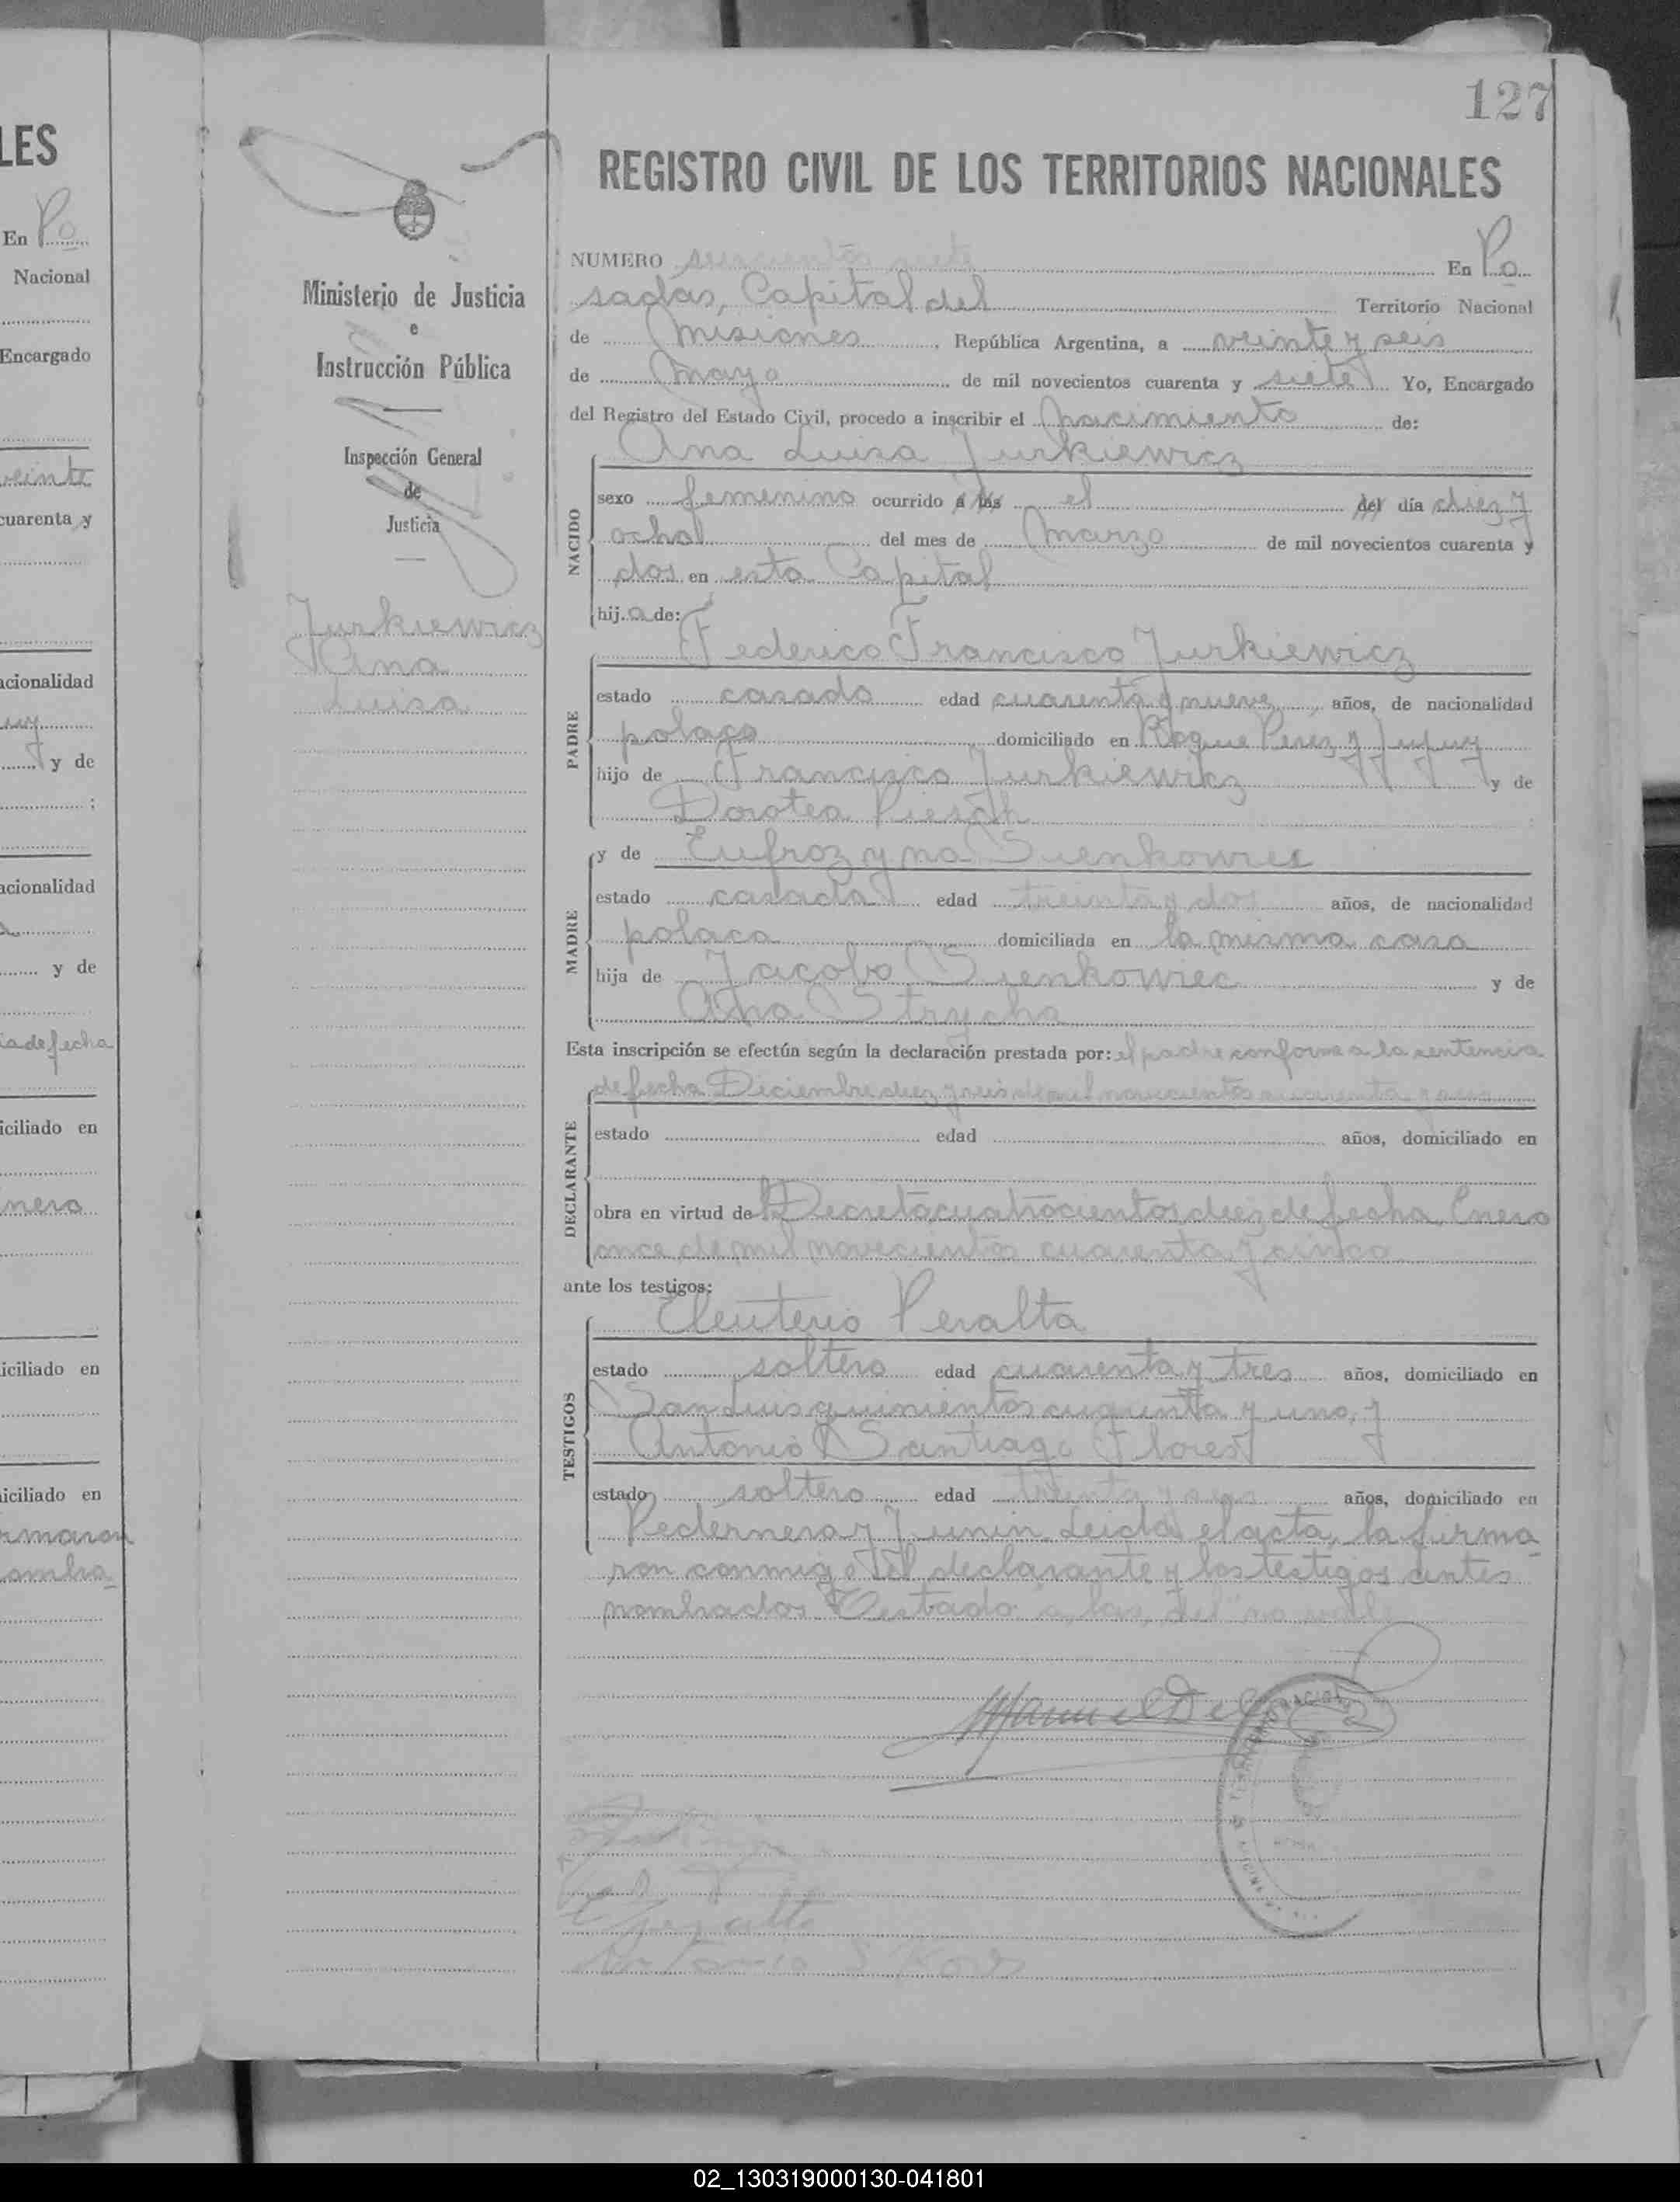 LES
En Po
Nacional
Encargado
veinte
cuarenta y
acionalidad
y de
acionalidad
y de
ia de fecha
iciliado en
nero
iciliado en
iciliado en
rmaron
ombra
127
Ministerio de Justicia
e
Instrucción Pública
Inspección General
de
Justicia
Jurkiewicz
Ana
Luisa
REGISTRO CIVIL DE LOS TERRITORIOS NACIONALES
NUMERO seiscientos siete En Po
sadas, Capital del Territorio Nacional
de Misiones, República Argentina, a veinte y seis
de Mayo de mil novecientos cuarenta y siete Yo, Encargado
del Registro del Estado Civil, procedo a inscribir el nacimiento de:
Ana Luisa Jurkiewicz
NACIDO
sexo femenino ocurrido a las el del día diez y
ocho del mes de Marzo de mil novecientos cuarenta y
dos en esta Capital
hija de:
Federico Francisco Jurkiewicz
PADRE
estado casado edad cuarenta y nueve años, de nacionalidad
polaca domiciliado en Roque Perez y Jujuy
hijo de Francisco Jurkiewicz y de
Dorotea
MADRE
y de Eufrozyna Sienkowiec
estado casada edad treinta y dos años, de nacionalidad
polaca domiciliada en la misma casa
hija de Jacobo Sienkowiec y de
Ana Strycha
Esta inscripción se efectúa según la declaración prestada por: el padre conforme a la sentencia
de fecha Diciembre diez y seis de mil novecientos cuarenta y seis
DECLARANTE
estado edad años, domiciliado en
obra en virtud de Decreto cuatrocientos diez de fecha Enero
once de mil novecientos cuarenta y cinco
ante los testigos:
Eleuterio Peralta
TESTIGOS
estado soltero edad cuarenta y tres años, domiciliado en
San Luis quinientos cincuenta y uno, y
Antonio Santiago Flores
estado soltero edad treinta y seis años, domiciliado en
Pedernera y Junin. Leida el acta, la firma
ron conmigo el declarante y los testigos antes
nombrados. Testado: a, las, del: no vale
Manuel
E Peralta
Antonio S Flores
02_130319000130-041801